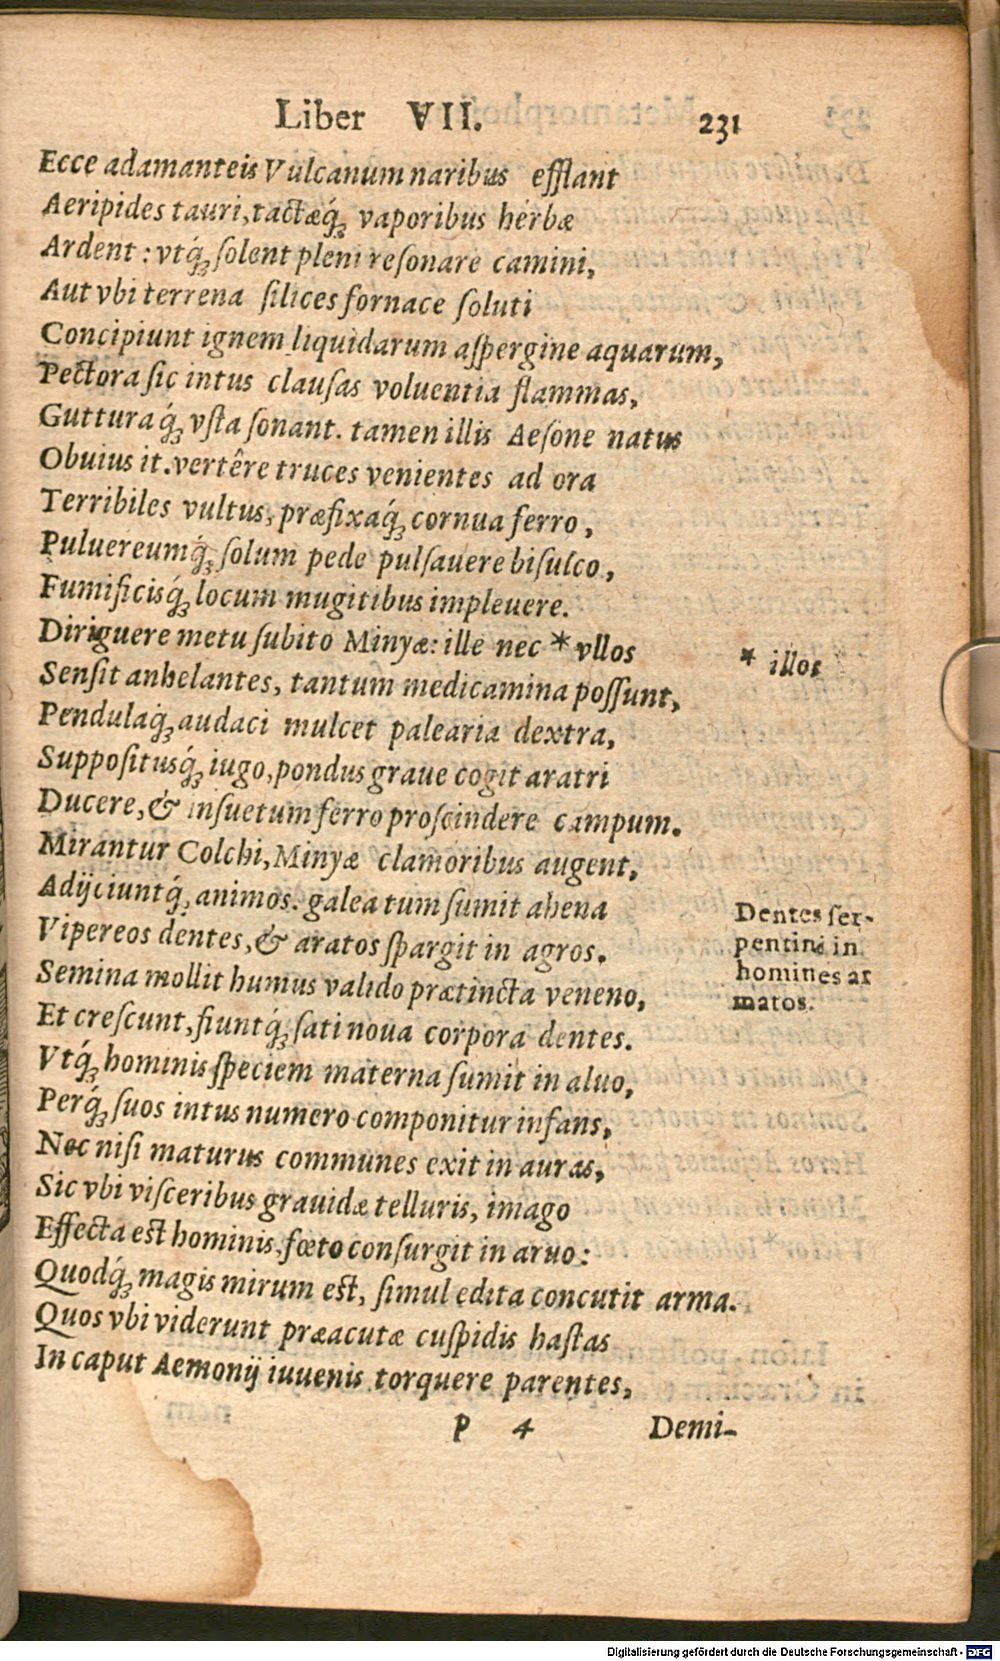 Liber VII. 231
Ecce adamanteis Vulcanum naribus efflant
Aeripides tauri, tactæq́ꝫ vaporibus herbæ
Ardent: vtq́ꝫ ſolent pleni reſonare camini,
Aut vbi terrena ſilices fornace ſoluti
Concipiunt ignem liquidarum aſpergine aquarum,
Pectora ſic intus clauſas voluentia flammas,
Gutturaq́ꝫ vſta ſonant. tamen illis Aeſone natus
Obuius it. vertêre truces venientes ad ora
Terribiles vultus, præfixaq́ꝫ cornua ferro,
Puluereumq́ꝫ ſolum pede pulſauere biſulco,
Fumificisq́ꝫ locum mugitibus impleuere.
Diriguere metu ſubito Minyæ: ille nec * vllos
* illos
Senſit anhelantes, tantum medicamina poſſunt,
Pendulaq́ꝫ audaci mulcet palearia dextra,
Suppoſitusq́ꝫ iugo, pondus graue cogit aratri
Ducere, & inſuetum ferro proſcindere campum.
Mirantur Colchi, Minyæ clamoribus augent,
Adijciuntq́ꝫ animos. galea tum ſumit ahena
Vipereos dentes, & aratos ſpargit in agros.
Dentes ſer-
pentini in
homines ar
matos.
Semina mollit humus valido prætincta veneno,
Et creſcunt, fiuntq́ꝫ ſati noua corpora dentes.
Vtq́ꝫ hominis ſpeciem materna ſumit in aluo,
Perq́ꝫ ſuos intus numero componitur infans,
Nec niſi maturus communes exit in auras,
Sic vbi viſceribus grauidæ telluris, imago
Effecta est hominis, fœto conſurgit in aruo:
Quodq́ꝫ magis mirum est, ſimul edita concutit arma.
Quos vbi viderunt præacutæ cuſpidis haſtas
In caput Aemonij iuuenis torquere parentes,
P 4 Demi-
Digitalisierung gefördert durch die Deutsche Forschungsgemeinschaft - DFG